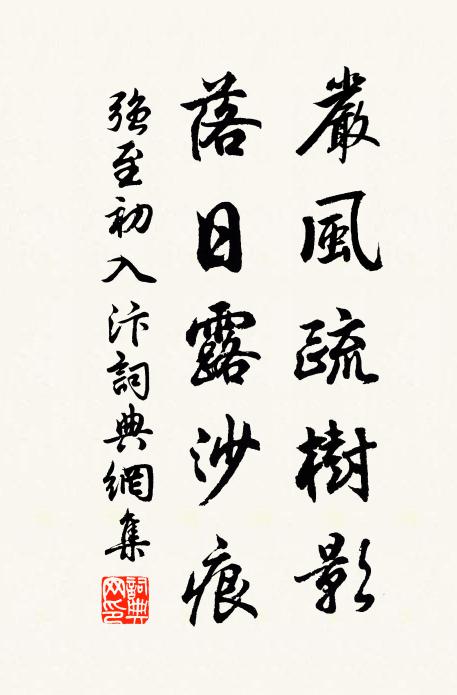 嚴風疏樹影
落日露沙痕
強至初入汴詞典網集
詞典網印